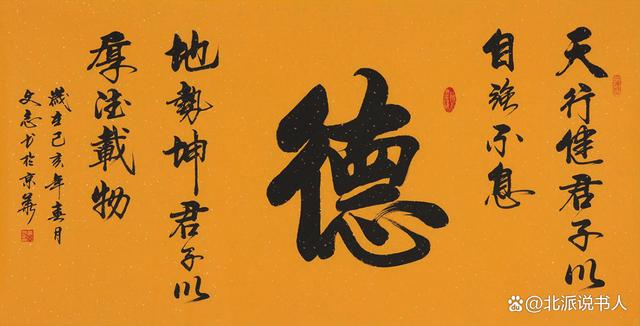 天行健君子以
自強不息
德
地勢坤君子以
厚德載物
歲在己亥年春月
文志书於京華
@北派说书人